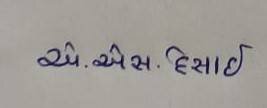 એ. એસ. દેસાઈ